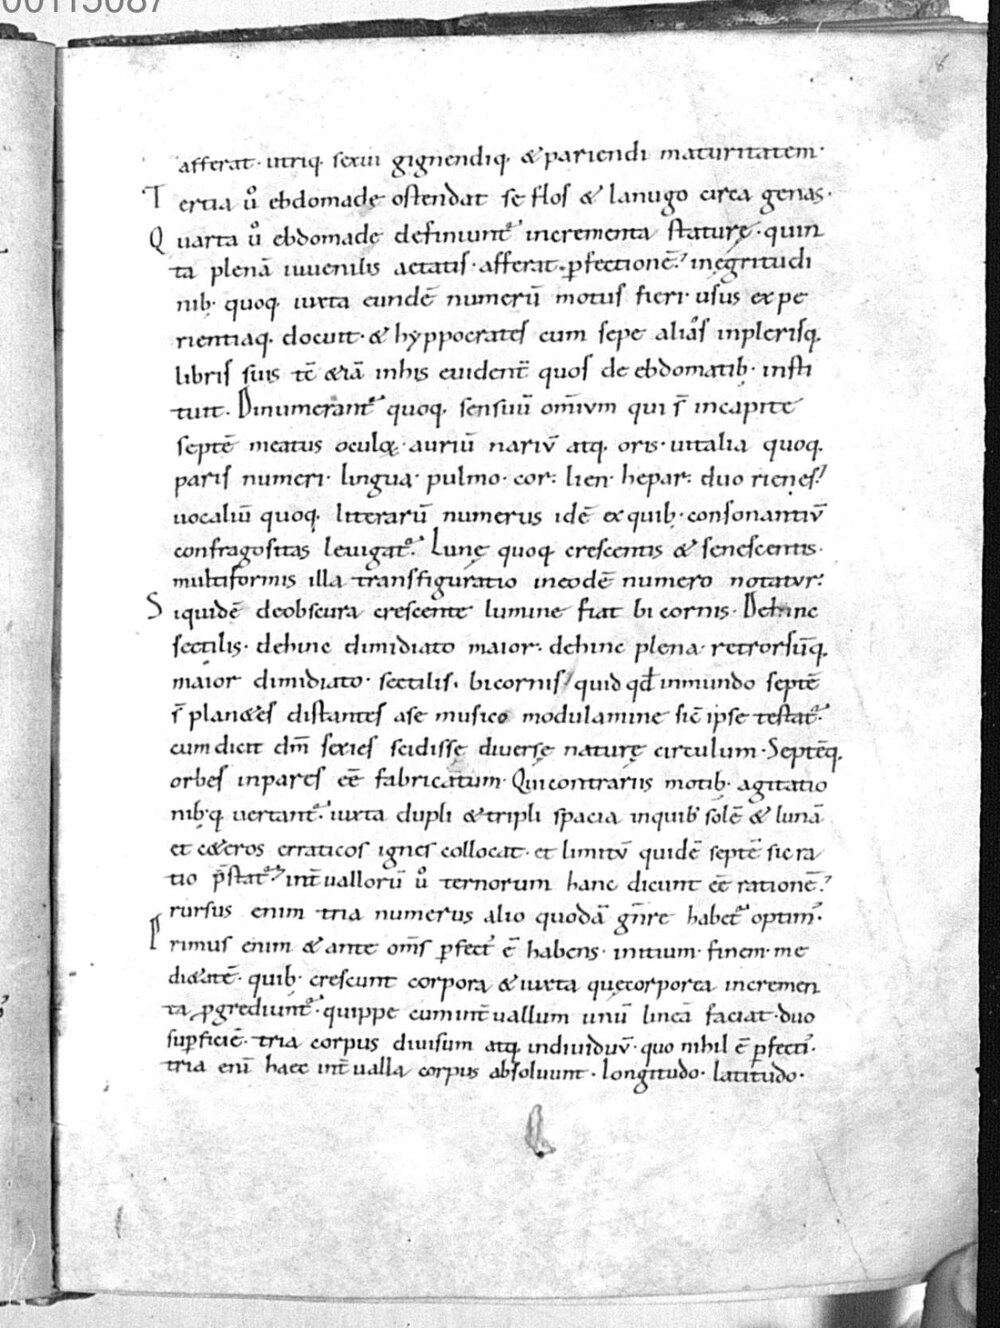 00115087
8
afferat· utriq; sexui gignendiq; &pariendi maturitatem·
Tertia ů ebdomade ostendat se flos & lanugo circa genas·
Quarta ů ebdomade definiunt̃ incrementa staturę· quin
ta plenā iuuenilis aetatis· afferat· ꝑfectionē; inęgritudi
nib; quoq; iuxta eundē numerū motus fieri· usus expe
rientiaq; docuit· & hyppocrates cum sepe alias inplerisq;
libris suis tē &iā inhis euident̃ quos de ebdomatib; insti
tuit· Dinumerant̃ quoq; sensuū om̄ium qui s̄ incapite
septē meatus oculoꝝ· auriū nariū atq; oris· uitalia quoq;
paris numeri· lingua· pulmo· cor· lien· hepar· duo rienes;
uocaliū quoq; litterarū numerus idē exquib; consonantiū
confragositas leuigat̃· Lunę quoq; crescentis & senescentis·
multiformis illa transfiguratio ineodē numero notatur:
Siquidē deobscura crescente lumine fiat bicornis· Dehinc
sectilis· dehinc dimidiato maior· dehinc plena· retrorsūq;
maior dimidiato· sectilis· bicornis; quid qđ inmundo septē
s̄ plan&es distantes ase musico modulamine sic ipse testat̃·
cum dicit dm̄ sexies scidisse diuersę naturę circulum· Septēq;
orbes inpares eē fabricatum· Quicontrariis motib; agitatio
nib;q; uertant̃· iuxta dupli &tripli spacia inquib; solē & lunā
et c&eros erraticos ignes collocat· et limitū quidē septē sic ra
tio p̄stat̃; int̄uallorū ů ternorum hanc dicunt eē rationē;
rursus enim tria numerus alio quodā gn̄re habet̃ optim᾽·
Primus enim & ante om̄s ꝑfect᾽ ē habens· initium· finem· me
di&atē· quib; crescunt corpora & iuxta quęcorporea incremen
ta ꝓgrediunt̃· quippe cumint̄uallum unū lineā faciat· duo
suꝑficiē· tria corpus diuisum atq; indiuiduū· quo nihil ē ꝑfecti᾽·
tria eni haec int̄ualla corpus absoluunt· longitudo· latitudo·